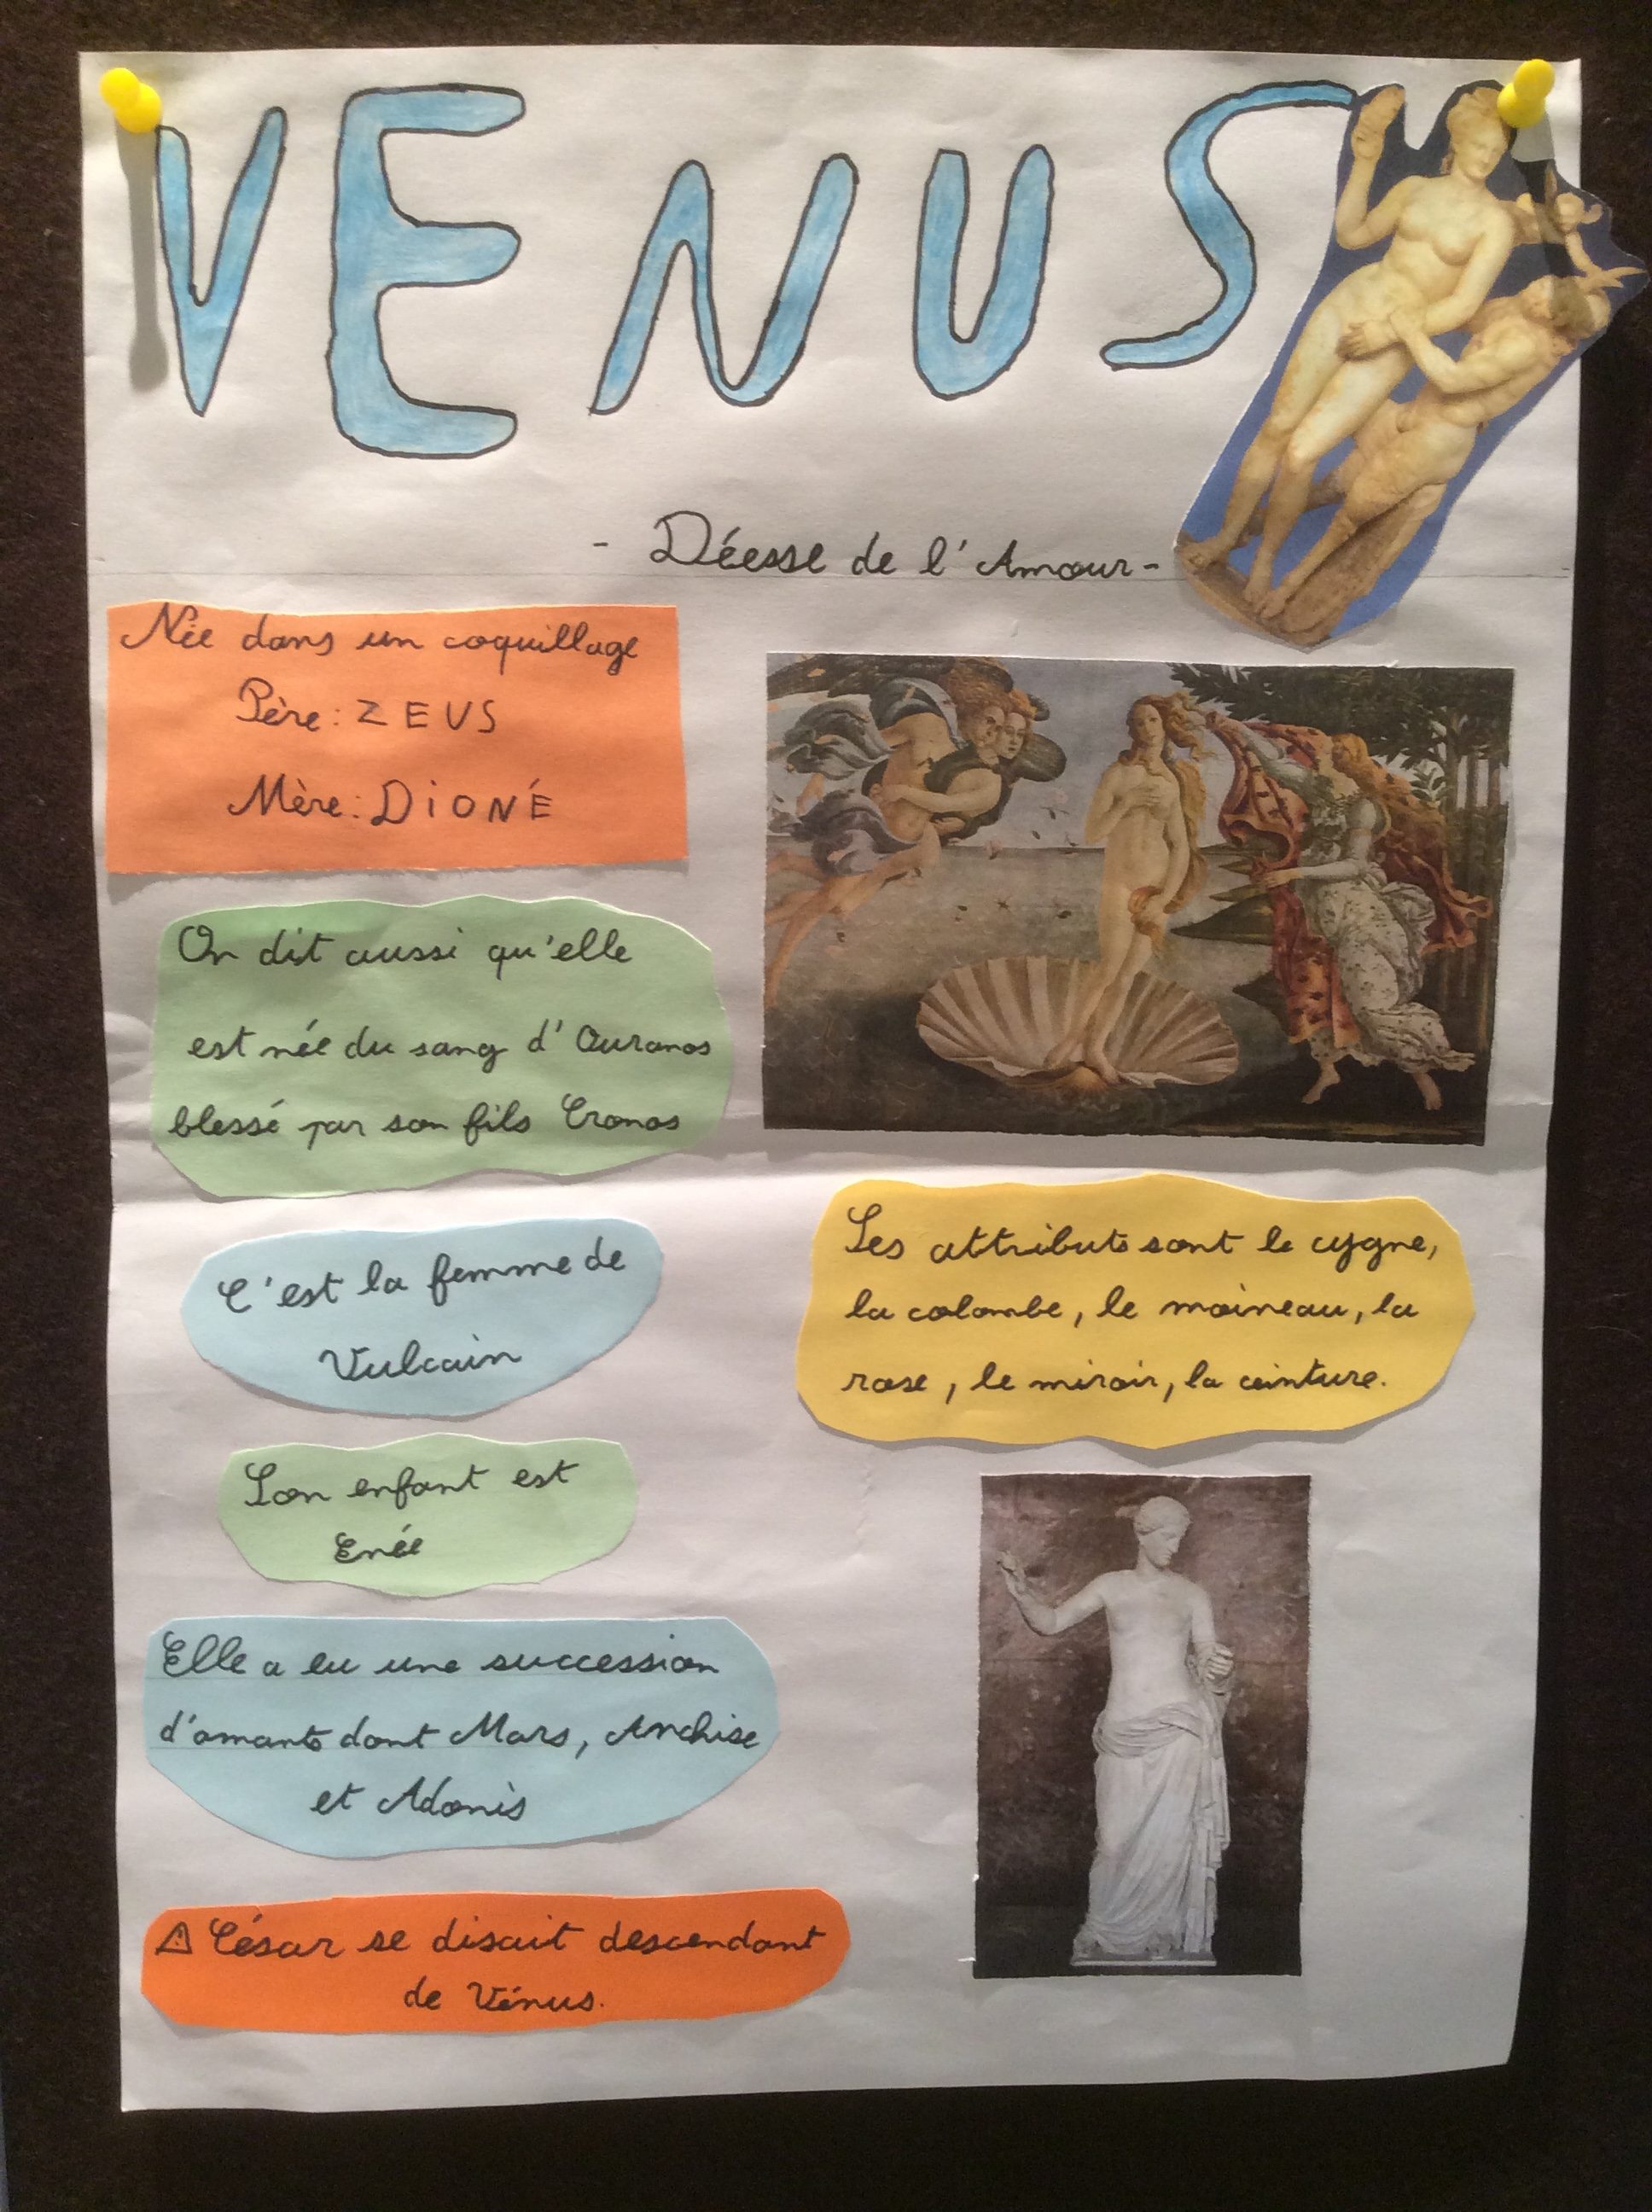 VENUS
- Déesse de l'Amour -
Née dans un coquillage
Père : ZEUS
Mère : DIONÉ
On dit aussi qu'elle
est née du sang d'Ouranos
blessé par son fils Cronos
C'est la femme de
Vulcain
Son enfant est
Enée
Elle a eu une succession
d'amants dont Mars, Anchise
et Adonis
⚠ César se disait descendant
de Vénus.
Les attributs sont le cygne,
la colombe, le moineau, la
rose, le miroir, la ceinture.